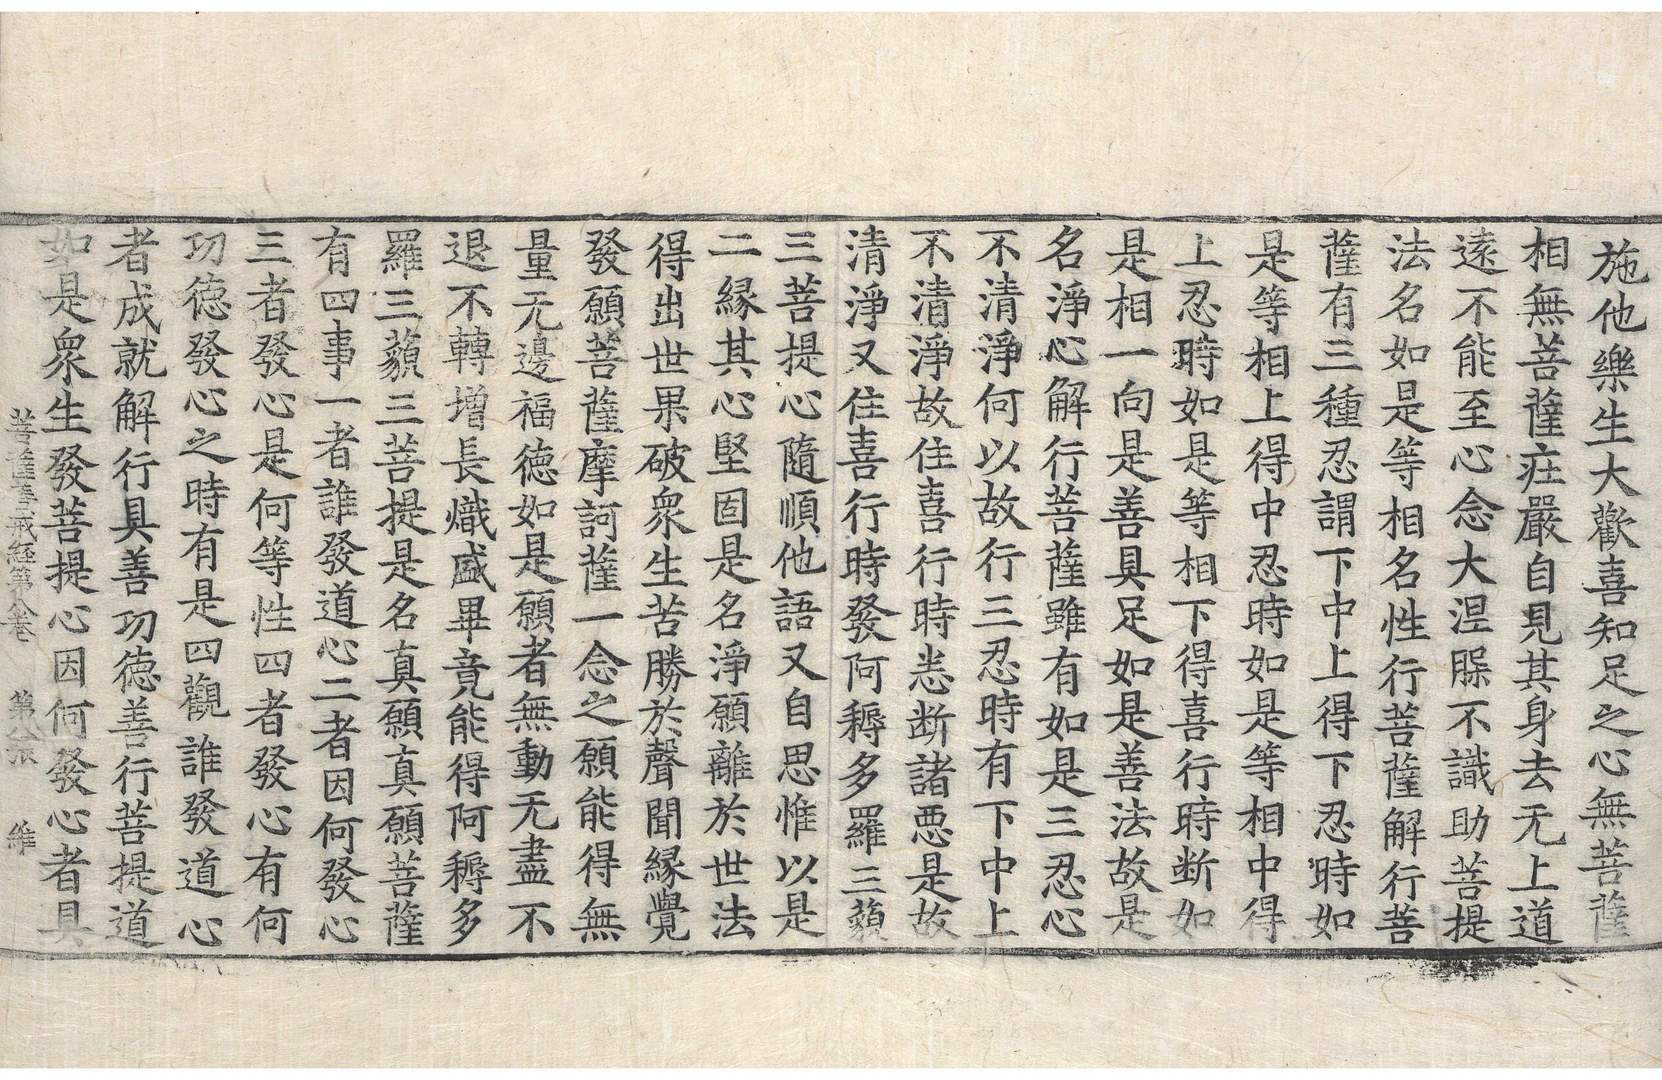 施他樂生大歡喜知足之心無菩薩
相無菩薩庄嚴自見其身去无上道
遠不能至心念大涅槃不識助菩提
法名如是等相名性行菩薩解行菩
薩有三種忍謂下中上得下忍時如
是等相上得中忍時如是等相中得
上忍時如是等相下得喜行時断如
是相一向是善具足如是善法故是
名淨心解行菩薩雖有如是三忍心
不清淨何以故行三忍時有下中上
不清淨故住喜行時悉断諸惡是故
清淨又住喜行時發阿耨多羅三藐
三菩提心隨順他語又自思惟以是
二縁其心堅固是名淨願離於世法
得出世果破衆生苦勝於聲聞縁覺
發願菩薩摩訶薩一念之願能得無
量无邊福徳如是願者無動无盡不
退不轉増長熾盛畢竟能得阿耨多
羅三藐三菩提是名真願真願菩薩
有四事一者誰發道心二者因何發心
三者發心是何等性四者發心有何
功徳發心之時有是四觀誰發道心
者成就解行具善功徳善行菩提道
如是衆生發菩提心因何發心者具
菩薩善戒經第八卷　第八張　維